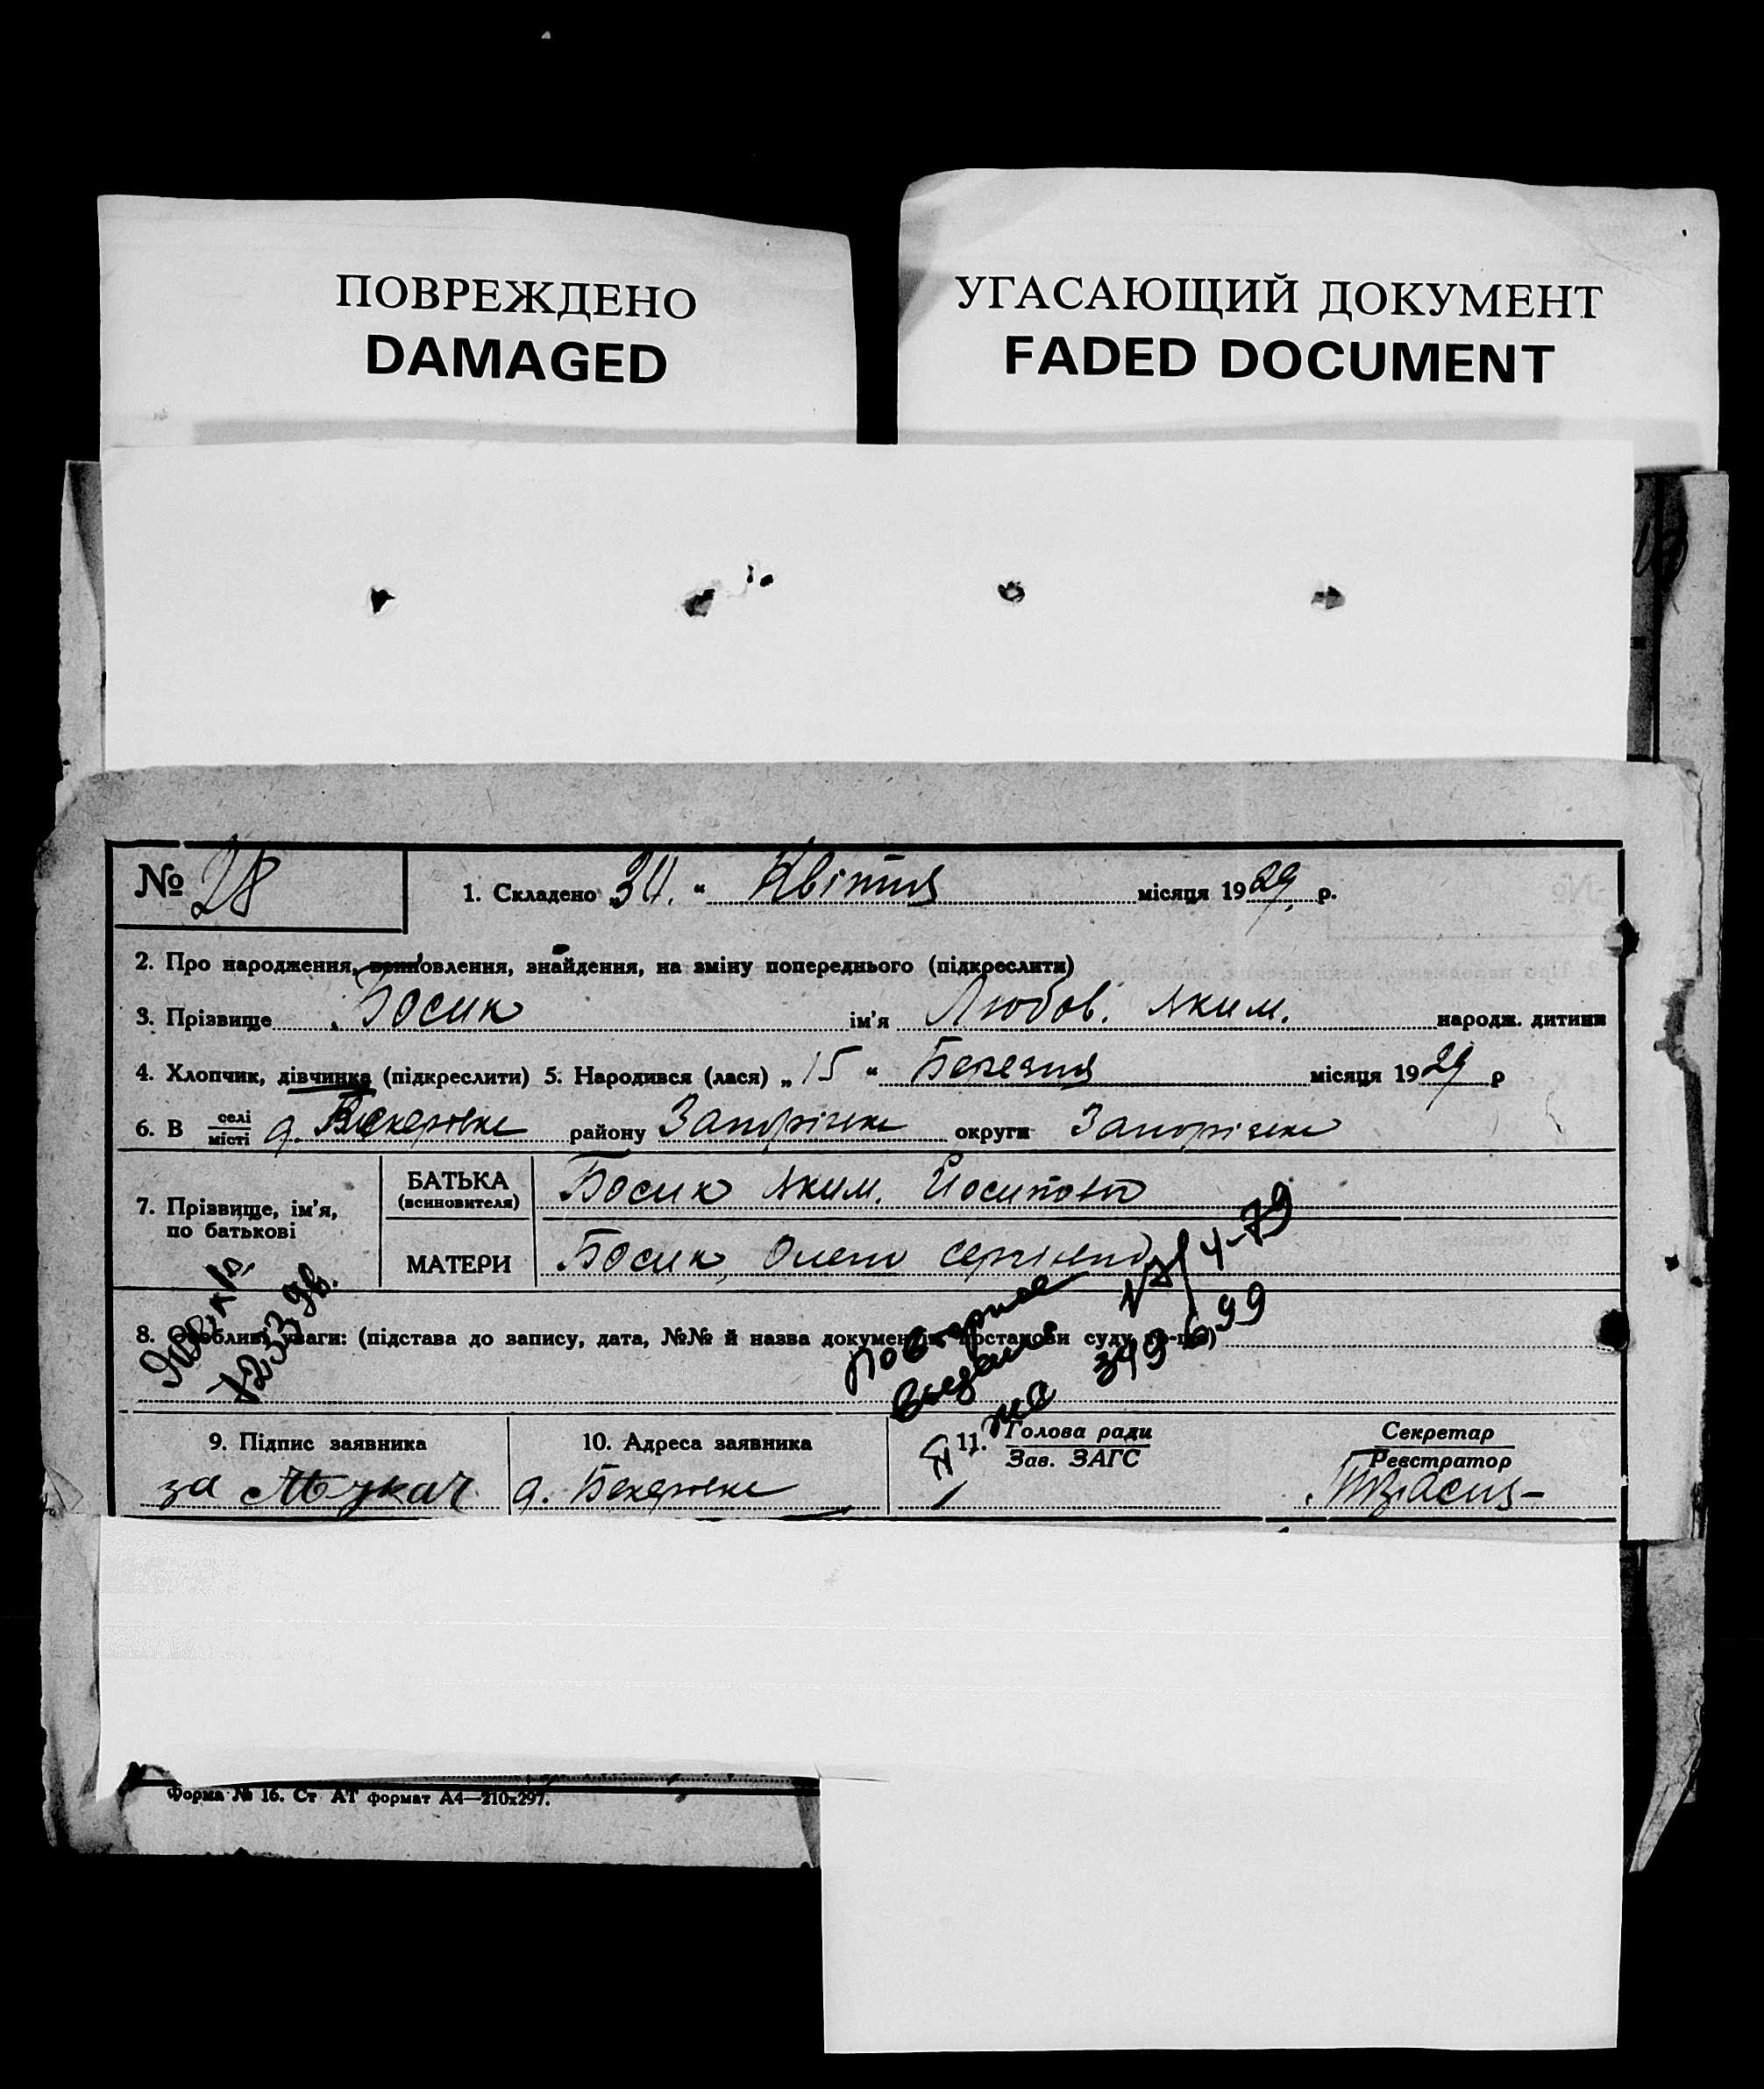 ПОВРЕЖДЕНО
DAMAGED
УГАСАЮЩИЙ ДОКУМЕНТ
FADED DOCUMENT
№ 28
1. Складено „ “ Квітня місяця 1929. р.
2. Про народження, всиновлення, знайдення, на зміну попереднього (підкреслити)
3. Прізвище Босик ім'я Любов. Аким. народж. дитини
4. Хлопчик, дівчинка (підкреслити) 5. Народився (лася) „15“ Березня місяця 1929 р
6. В селі/місті району Запорізьке округи Запорізьке
7. Прізвище, ім'я, по батькові
БАТЬКА (всиновителя) Босик Аким. Йосипов
МАТЕРИ Босик, Олена
8. Особливі уваги: (підстава до запису, дата, №№ й назва документів, постанови суду то-що)
Повторное
4-79
349699
9. Підпис заявника
10. Адреса заявника
11. Голова ради
Зав. ЗАГС
Секретар
Реєстратор
за
Форма № 16. Ст АТ формат А4—210х297.